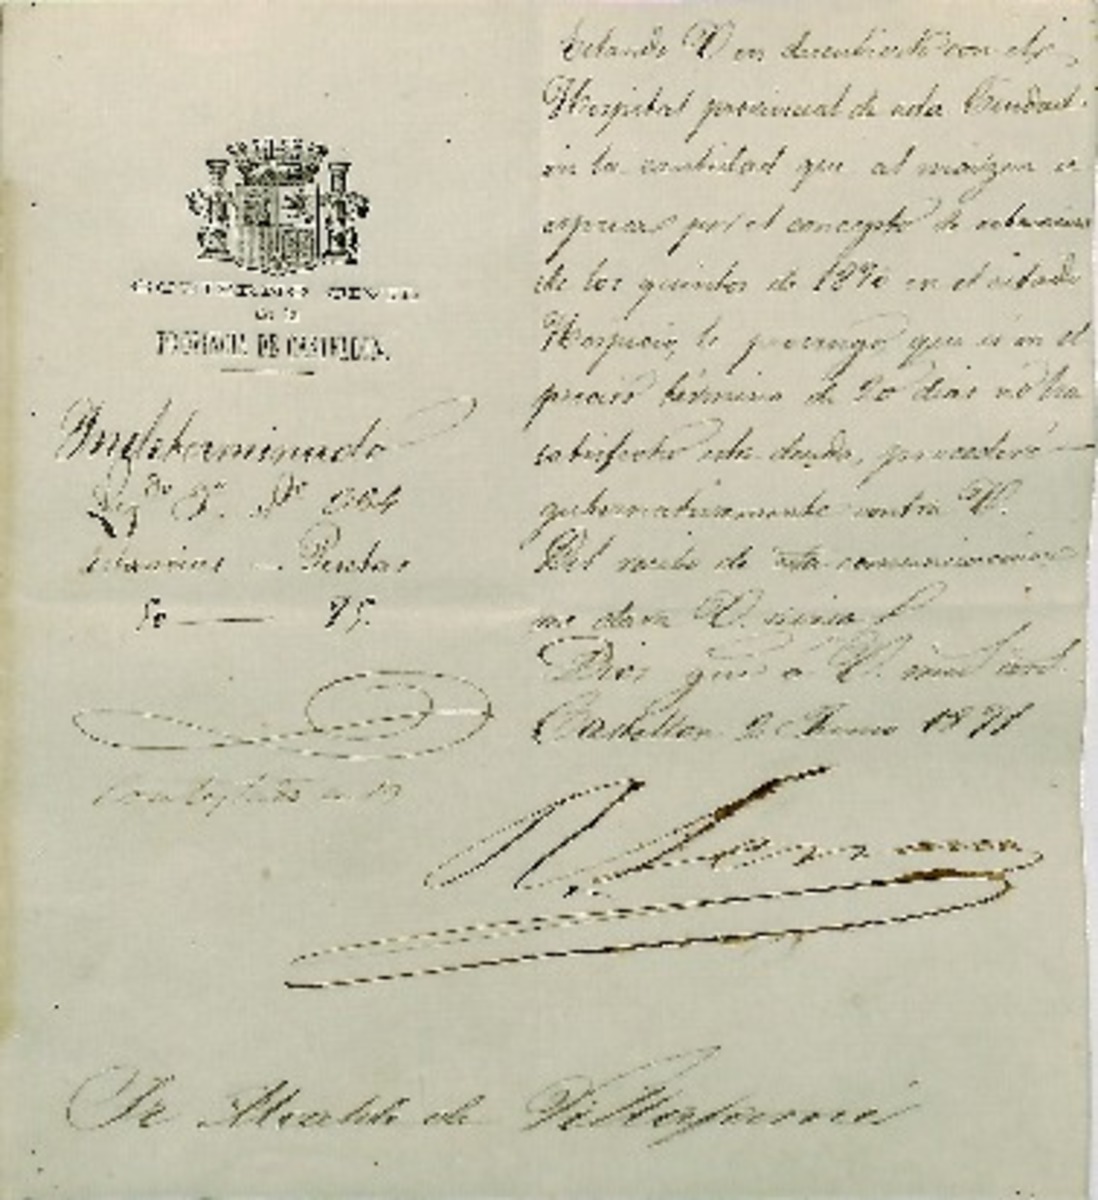 PROVINCIA DE CASTELLON.
Indeterminado
Neg.do 3.o N.o 264
estancias Pesetas
50 — 75.
Contestado en 13
Estando V en descubierto con el
Hospital provincial de esta Ciudad
en la cantidad que al margen se
espresa por el concepto de estancias
de los quintos de 1870 en el citado
Hospicio, le prevengo que si en el
preciso término de 20 dias no ha
satisfecho esta deuda, procederé
gubernativamente contra V.
Del recibo de esta comunicacion
me dara V. aviso
Dios gue a V. mu.s an.s
Castellon 2 Junio 1871
Sr Alcalde de Villafamé